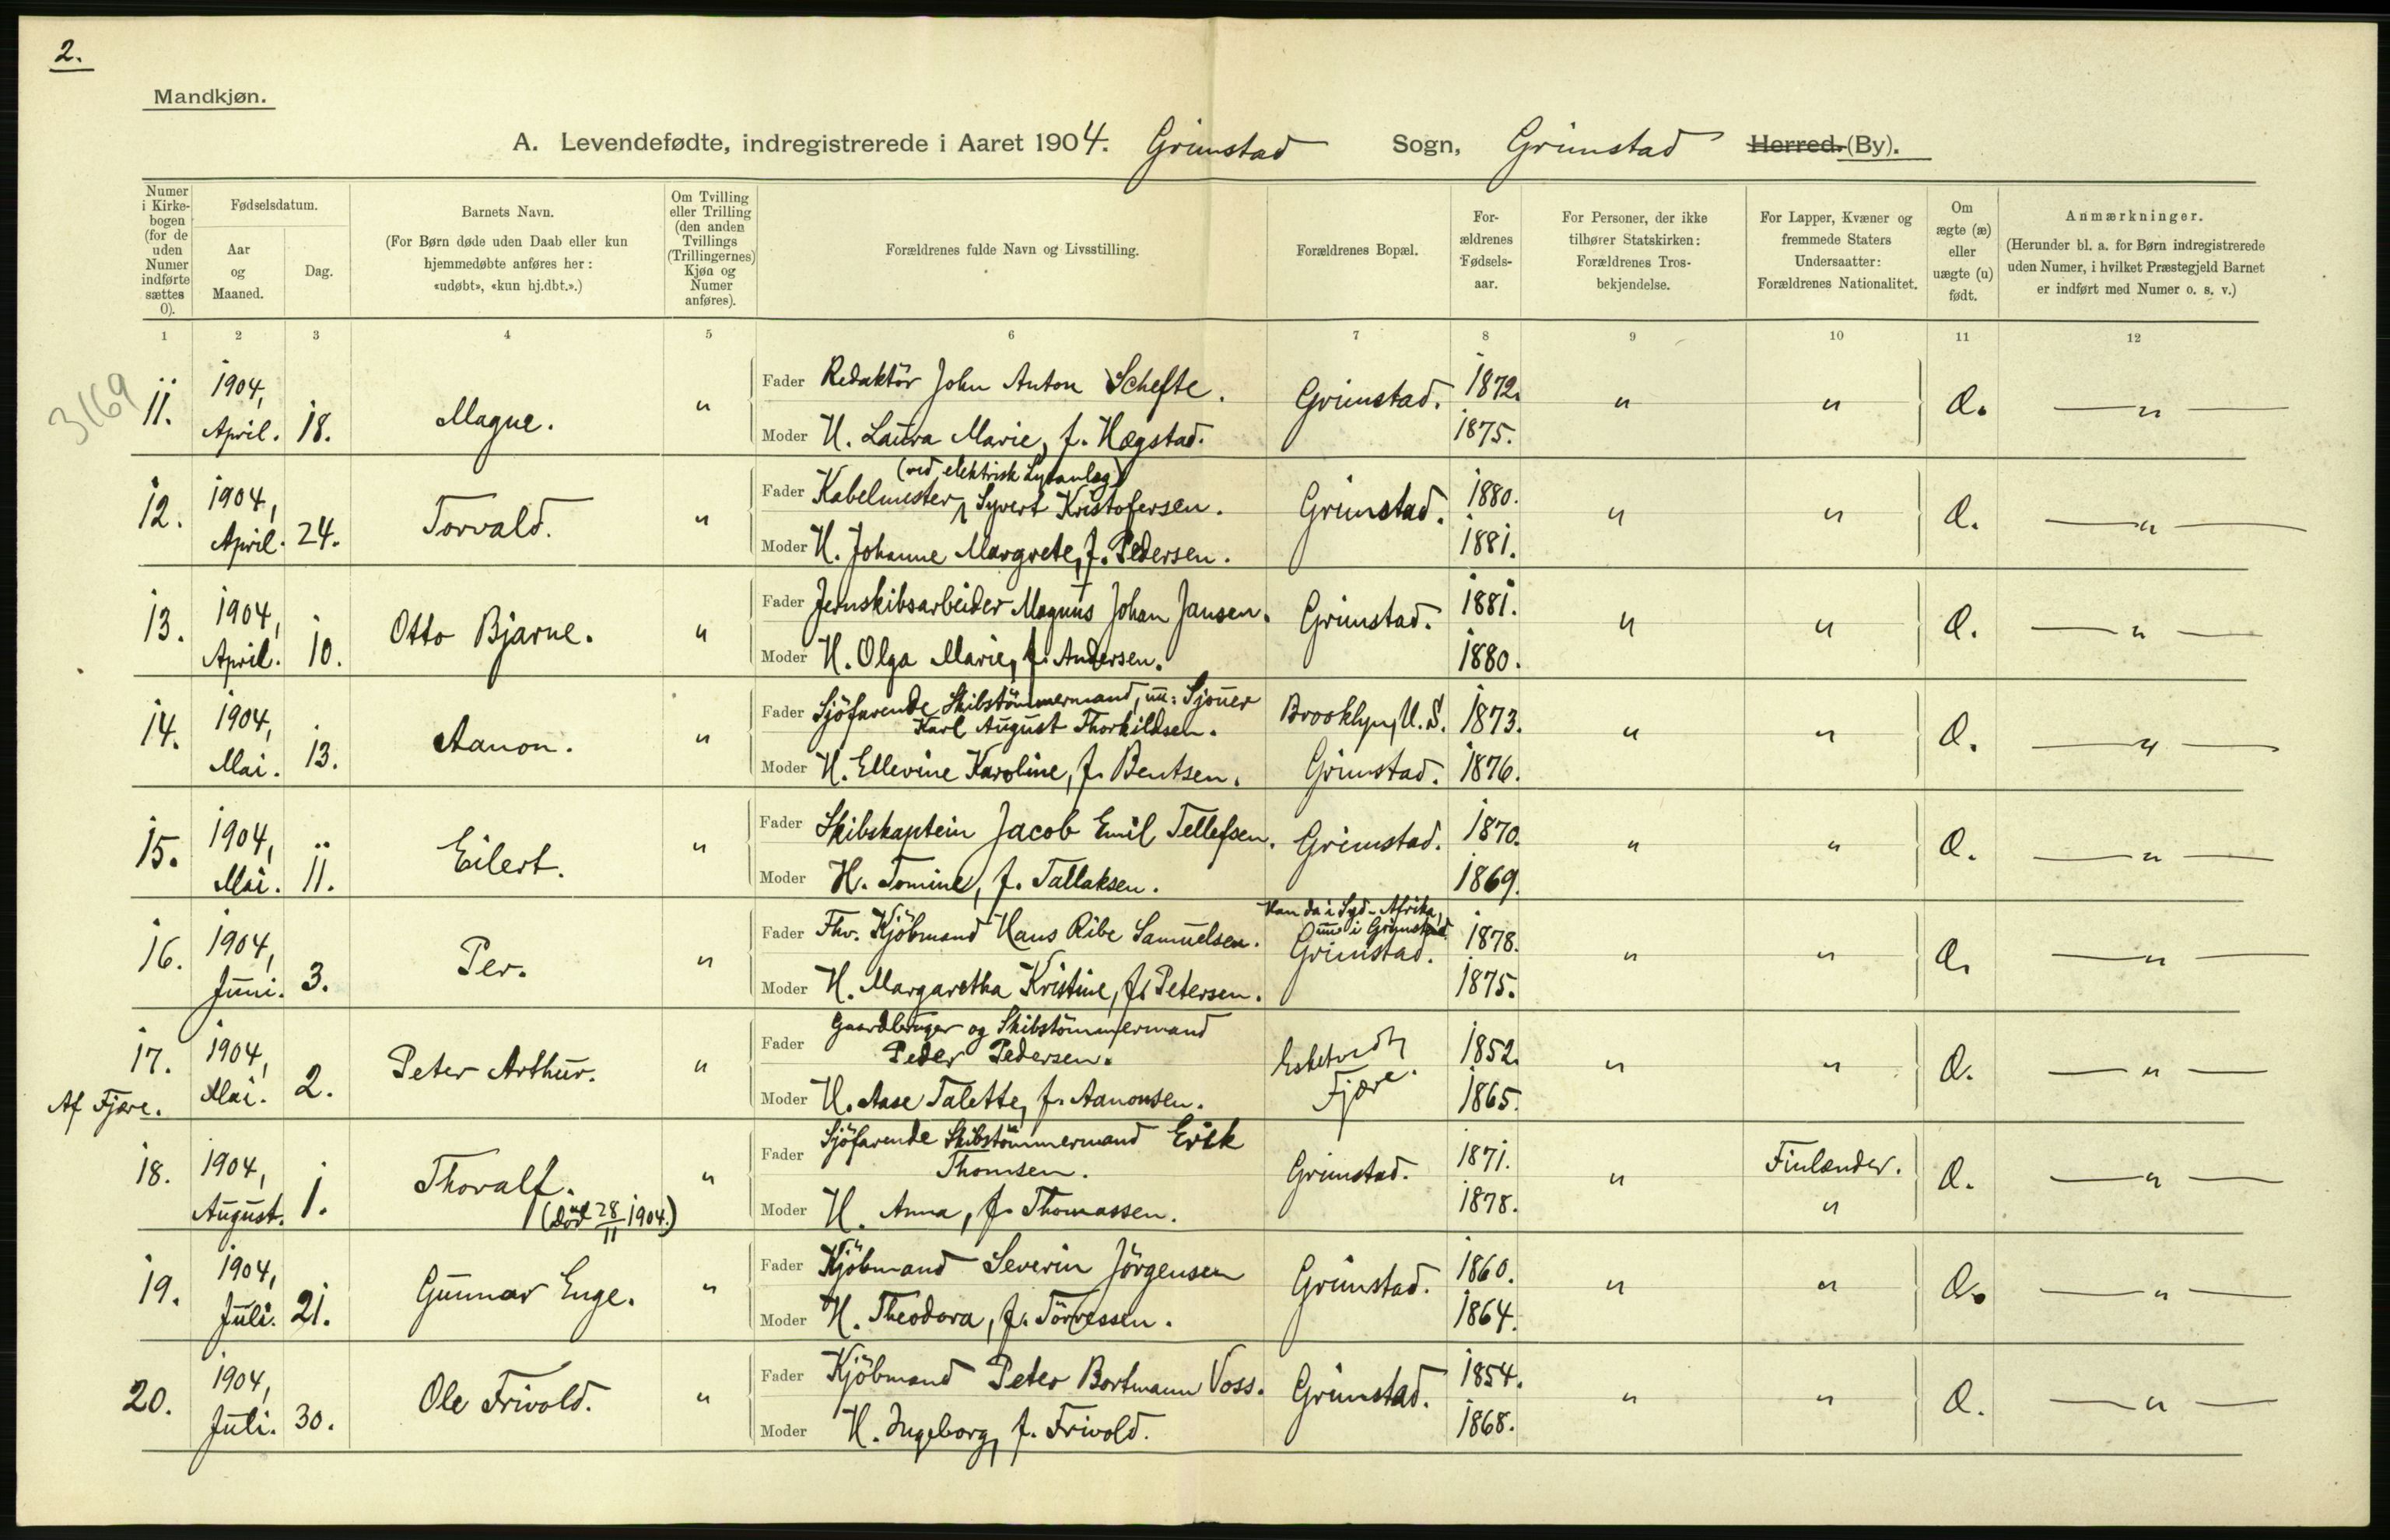 2.
Mandkjøn.
A. Levendefødte, indregistrerede i Aaret 1904. Grimstad Sogn, Grimstad Herred. (By).
Numer i Kirke-bogen (for de uden Numer indførte sættes 0).
Fødselsdatum.
Aar og Maaned.
Dag.
Barnets Navn.
(For Børn døde uden Daab eller kun hjemmedøbte anføres her: «udøbt», «kun hj.dbt.».)
Om Tvilling eller Trilling (den anden Tvillings (Trillingernes) Kjøn og Numer anføres).
Forældrenes fulde Navn og Livsstilling.
Forældrenes Bopæl.
For-ældrenes Fødsels-aar.
For Personer, der ikke tilhører Statskirken: Forældrenes Tros-bekjendelse.
For Lapper, Kvæner og fremmede Staters Undersaatter: Forældrenes Nationalitet.
Om ægte (æ) eller uægte (u) født.
Anmærkninger.
(Herunder bl. a. for Børn indregistrerede uden Numer, i hvilket Præstegjeld Barnet er indført med Numer o. s. v.)
1 2 3 4 5 6 7 8 9 10 11 12
3169
11. 1904, April. 18. Magne. " Fader Redaktör John Anton Schefte. Grimstad. 1872. " " Æ. — " —
Moder H. Laura Marie, f. Hægstad. 1875.
12. 1904, April. 24. Torvald. " Fader Kabelmester (ved elektrisk Lysanlæg) Syvert Kristofersen. Grimstad. 1880. " " Æ. — " —
Moder H. Johanne Margrete, f. Pedersen. 1881.
13. 1904, April. 10. Otto Bjarne. " Fader Jernskibsarbeider Magnus Johan Jansen. Grimstad. 1881. " " Æ. — " —
Moder H. Olga Marie, f. Andersen. 1880.
14. 1904, Mai. 13. Aanon. " Fader Sjöfarende Skibstömmermand, nu: Sjouer
Karl August Thorkildsen. Brooklyn, U.S. 1873. " " Æ. — " —
Moder H. Ellevine Karoline, f. Bentsen. Grimstad. 1876.
15. 1904, Mai. 11. Eilert. " Fader Skibskaptein Jacob Emil Tellefsen. Grimstad. 1870. " " Æ. — " —
Moder H. Tomine, f. Tallaksen. 1869.
16. 1904, Juni. 3. Per. " Fader Fhv. Kjöbmand Hans Ribe Samuelsen. Han da i Syd-Afrika, nu i Grimstad. Grimstad. 1878. " " Æ. — " —
Moder H. Margaretha Kristine, f. Petersen. 1875.
17. Af Fjære. 1904, Mai. 2. Peter Arthur. " Fader Gaardbruger og Skibstömmermand
Peder Pedersen. Fjære. 1852. " " Æ. — " —
Moder H. Aase Talette, f. Aanonsen. 1865.
18. 1904, August. 1. Thoralf. (död 28/11 1904.) " Fader Sjöfarende Skibstömmermand Erik
Thomsen. Grimstad. 1871. " Finlænder. Æ. — " —
Moder H. Anna, f. Thomassen. 1878. "
19. 1904, Juli. 21. Gunnar Enge. " Fader Kjöbmand Severin Jörgensen Grimstad. 1860. " " Æ. — " —
Moder H. Theodora, f. Törressen. 1864.
20. 1904, Juli. 30. Ole Frivold. " Fader Kjöbmand Peter Bortmann Voss. Grimstad. 1854. " " Æ. — " —
Moder H. Ingeborg, f. Frivold. 1868.